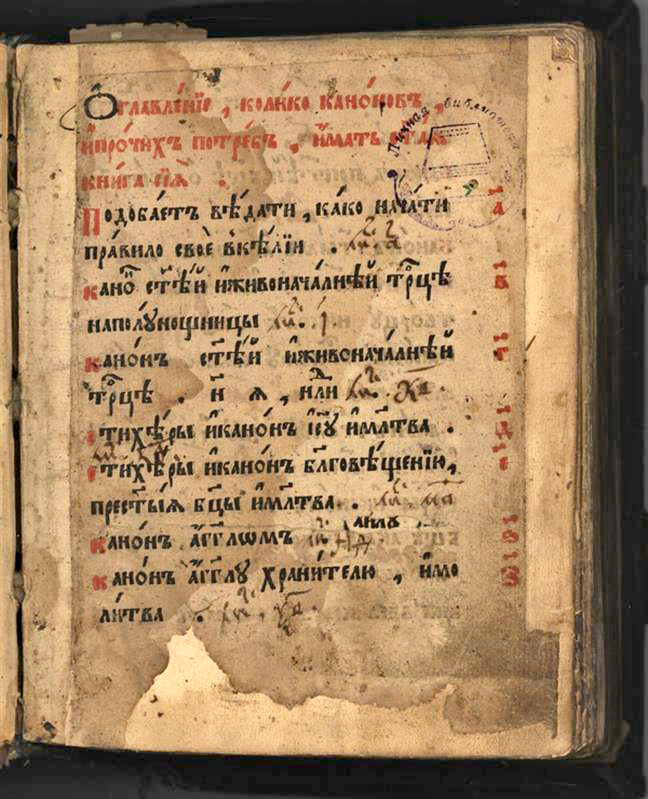 Ѻглавле́нїе, коли́ко кано́новъ,
и҆про́чихъ потре́бъ, и҆́мать
кни́га сїѧ̀.
Подоба́етъ вѣ́дати, ка́ко нача́ти
пра́вило своѐ вке́лїи.
кано́ ст҃ѣ́й и҆живонача́лнѣй трⷪ҇цѣ
наполу́нощницы
кано́нъ ст҃ѣ́й и҆живонача́лнѣй
трⷪ҇цѣ. н҃ ѧ, и҆лѝ
стихѣ́ры и҆кано́нъ і҆с҃у и҆мл҃тва.
стихѣ́ры и҆кано́нъ бл҃говѣ́щенїю,
прест҃ы́ѧ бц҃ы и҆мл҃тва.
кано́нъ а҆́гг҃лѡмъ
кано́нъ а҆́гг҃лу храни́телю, и҆мо
ли́тва.
Личная библиотека